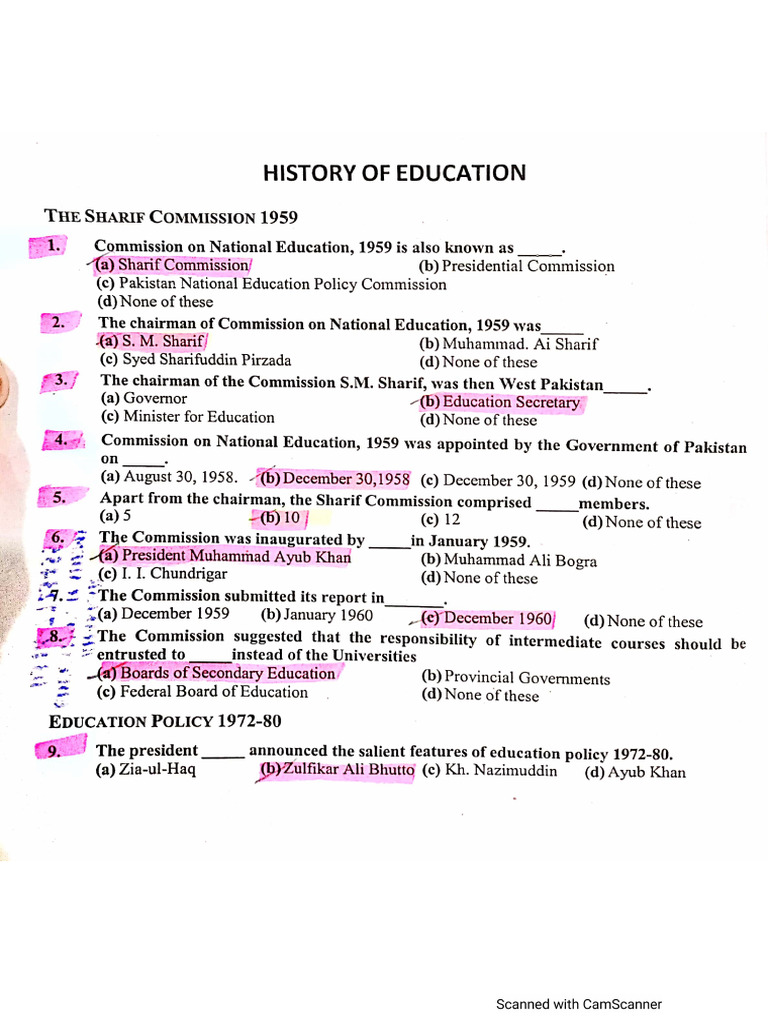 HISTORY OF EDUCATION
THE SHARIF COMMISSION 1959
1. Commission on National Education, 1959 is also known as _____.
(a) Sharif Commission (b) Presidential Commission
(c) Pakistan National Education Policy Commission
(d) None of these
2. The chairman of Commission on National Education, 1959 was_____
(a) S. M. Sharif (b) Muhammad. Ai Sharif
(c) Syed Sharifuddin Pirzada (d) None of these
3. The chairman of the Commission S.M. Sharif, was then West Pakistan_____.
(a) Governor (b) Education Secretary
(c) Minister for Education (d) None of these
4. Commission on National Education, 1959 was appointed by the Government of Pakistan
on _____.
(a) August 30, 1958. (b) December 30,1958 (c) December 30, 1959 (d) None of these
5. Apart from the chairman, the Sharif Commission comprised _____members.
(a) 5 (b) 10 (c) 12 (d) None of these
6. The Commission was inaugurated by _____in January 1959.
(a) President Muhammad Ayub Khan (b) Muhammad Ali Bogra
(c) I. I. Chundrigar (d) None of these
7. The Commission submitted its report in_______.
(a) December 1959 (b) January 1960 (c) December 1960 (d) None of these
8. The Commission suggested that the responsibility of intermediate courses should be
entrusted to _____instead of the Universities
(a) Boards of Secondary Education (b) Provincial Governments
(c) Federal Board of Education (d) None of these
EDUCATION POLICY 1972-80
9. The president _____ announced the salient features of education policy 1972-80.
(a) Zia-ul-Haq (b) Zulfikar Ali Bhutto (c) Kh. Nazimuddin (d) Ayub Khan
Scanned with CamScanner